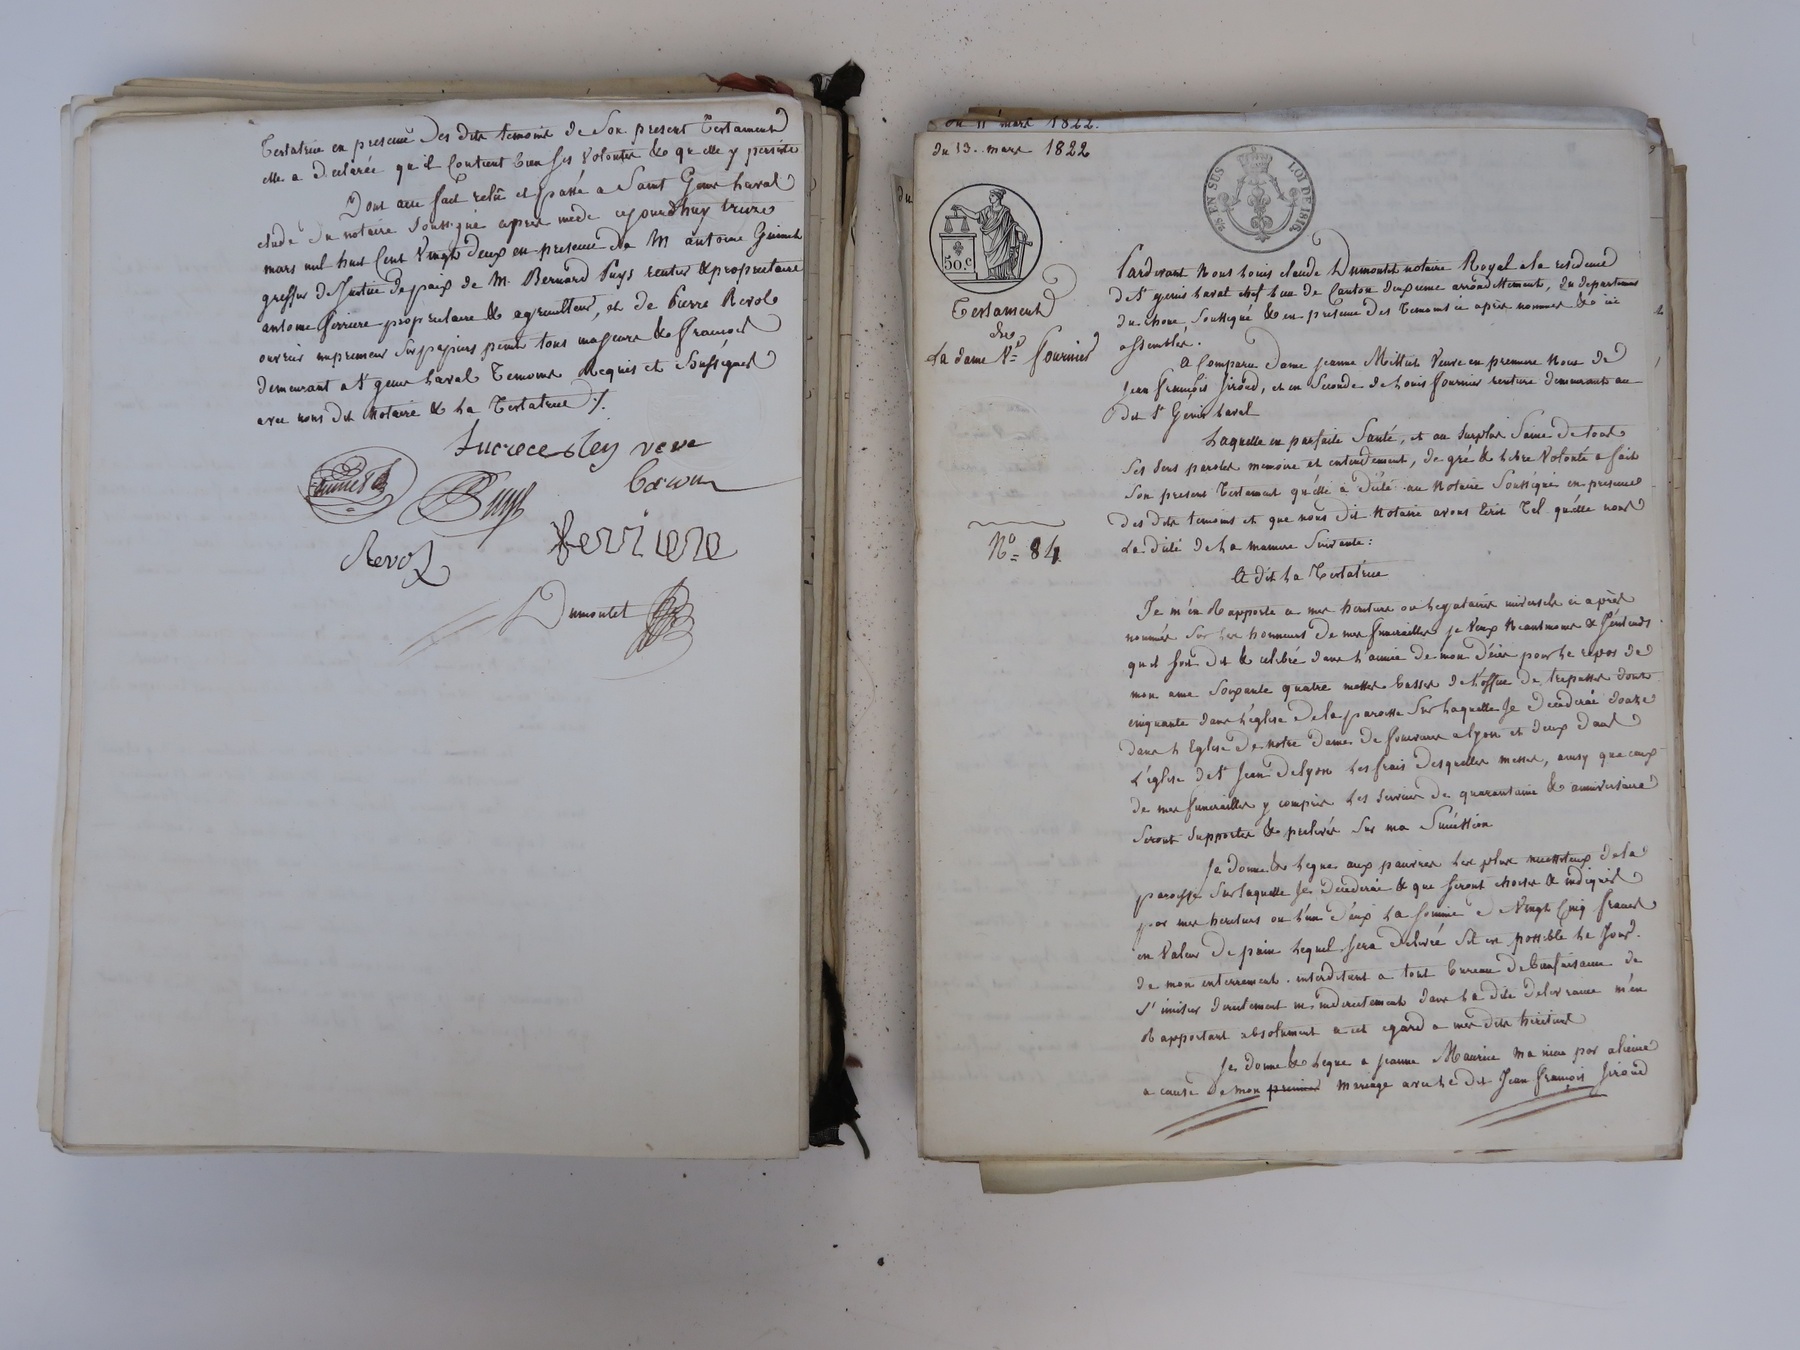 Testatrice en presence des dits temoins de Son present Testament
elle a declarée qu'il Contient bien Ses Volontés & qu'elle y persiste
Dont acte fait relu et passé a Saint Genis Laval
etude du notaire Soussigné apres midi ce jourdhuy treize
mars mil huit Cent Vingt deux en presence de M antoine
greffier de Justice de paix de M. Bernard Puys rentier & proprietaire
antoine ferriere proprietaire & agriculteur, et de Pierre Revol
ouvrier imprimeur Sur papiers peints tous majeurs & Francois
demeurant a St genis Laval Temoins Requis et Soussignés
avec nous dit Notaire & La Testatrice ./.
Lucrece Ley veve
Puys
Revol
ferriere
Dumontet
du 11 mars 1822.
du 13. mars 1822
SES
LOI DE 1816.
50.c
Testament
de
La dame Ve. fournier
No. 84
Pardevant Nous Louis claude Dumontet notaire Royal a la residence
de St genis Laval chef lieu de Canton deuxieme arrondissement, du departement
du rhone, Soussigné & en presence des Temoins ci après nommés & ici
assemblés.
A Comparu Dame jeanne Millet Veuve en premiere Noce de
Jean François Giroud, et en Seconde de Louis Fournier rentiere demeurante au
dit St Genis Laval
Laquelle en parfaite Santé, et au Surplus Saine de tous
Ses Sens paroles memoire et entendement, de gré & libre Volonté a fait
Son present Testament qu'elle à dicté au Notaire Soussigné en presence
des dits temoins et que nous dit Notaire avons Ecrit Tel qu'elle nous
La dicté de la maniere Suivante:
A dit la Testatrice
Je m'en Rapporte a mes heritiers ou Legataires universels ci après
nommés Sur les honneurs de mes funerailles je Veux Neantmoins & J'entends
qu'il Soit dit & celebré dans l'année de mon décès pour le repos de
mon ame Soixante quatre messes basses de l'office de trepasses dont
cinquante dans l'église de la paroisse Sur laquelle Je decederai douze
dans l'Eglise de notre dame de fourviere a lyon et deux dans
L'église de St Jean de lyon Les frais desquelles messes, ainsy que ceux
de mes funerailles y compris les Services de quarantaine & anniversaire
Seront Supportés & prelevés Sur ma Succéssion
Je donne & Legue aux pauvres les plus necessiteux de la
paroisse Sur laquelle Je decederai & que Seront choisis & indiqués
par mes heritiers ou l'un d'eux La Somme de Vingt Cinq francs
en Valeur de pain Lequel Sera delivré S'il est possible Le Jour
de mon enterrement. interdisant a tout bureau de bienfaisance de
S'imiscer directement ni indirectement dans la dite delivrance m'en
Rapportant absolument a cet egard a mes dits heritiers
Je donne & Legue a jeanne Maurice Ma niece par alliance
a cause de mon premier Mariage avec le dit Jean François Giroud